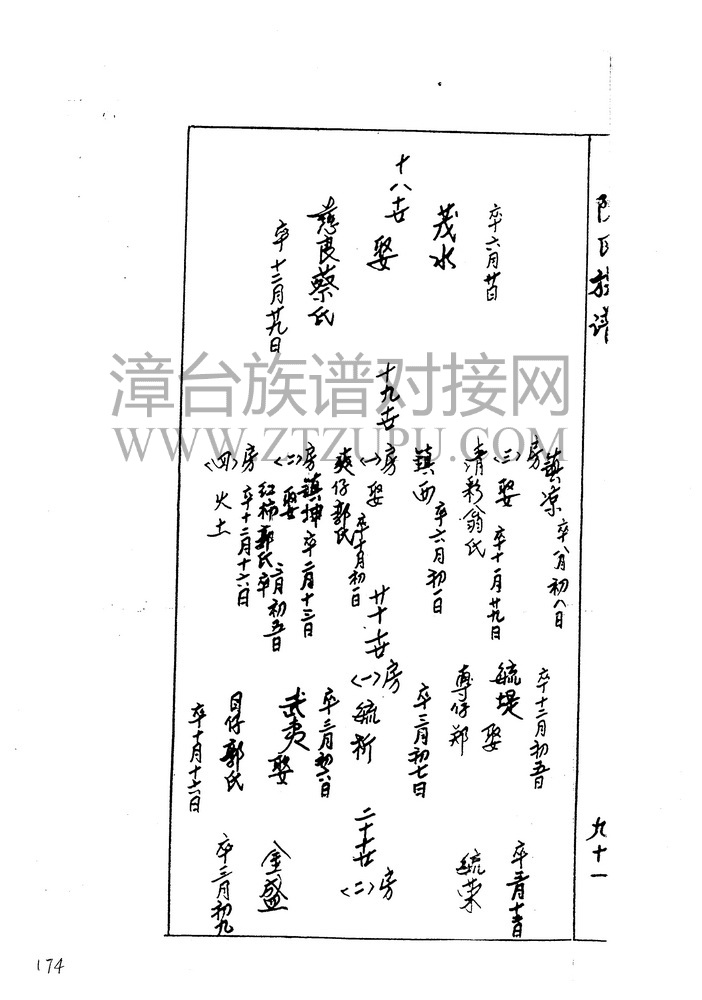 陈氏族谱
九十一
十八世
卒六月廿日
茂水
娶
慈良蔡氏
卒十二月廿九日
十九世
镇凉 卒八月初八日
房(三)娶 卒十一月廿九日
清彩翁氏
镇西 卒六月初一日
房(一)娶 卒十月初一日
爽仔郭氏
房镇坤 卒二月十三日
(二)娶
红柿郭氏卒六月初五日
房 卒十二月十六日
(四)火土
二十世
卒十二月初五日
毓堤 娶
专仔郑
卒三月初七日
房
(一)毓析
卒三月初六日
武夷 娶
日仔郭氏
卒十月十六日
二十世
毓荣
房
(二)
金盛
卒三月初九
漳台族谱对接网
WWW.ZTZUPU.COM
174